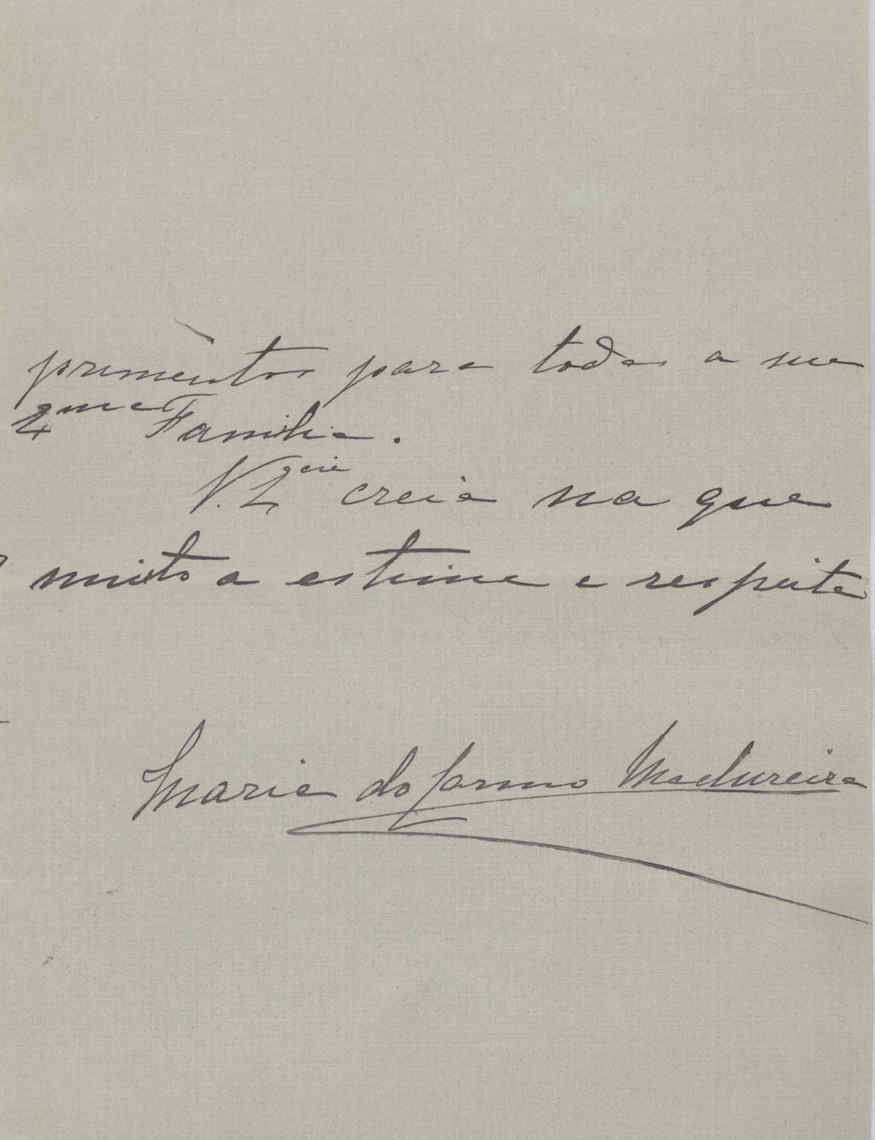 primentos para toda a sua
Ex.ma Familia.
V. Ex.cia creia na que
muito a estima e respeita
Maria do Carmo Madureira